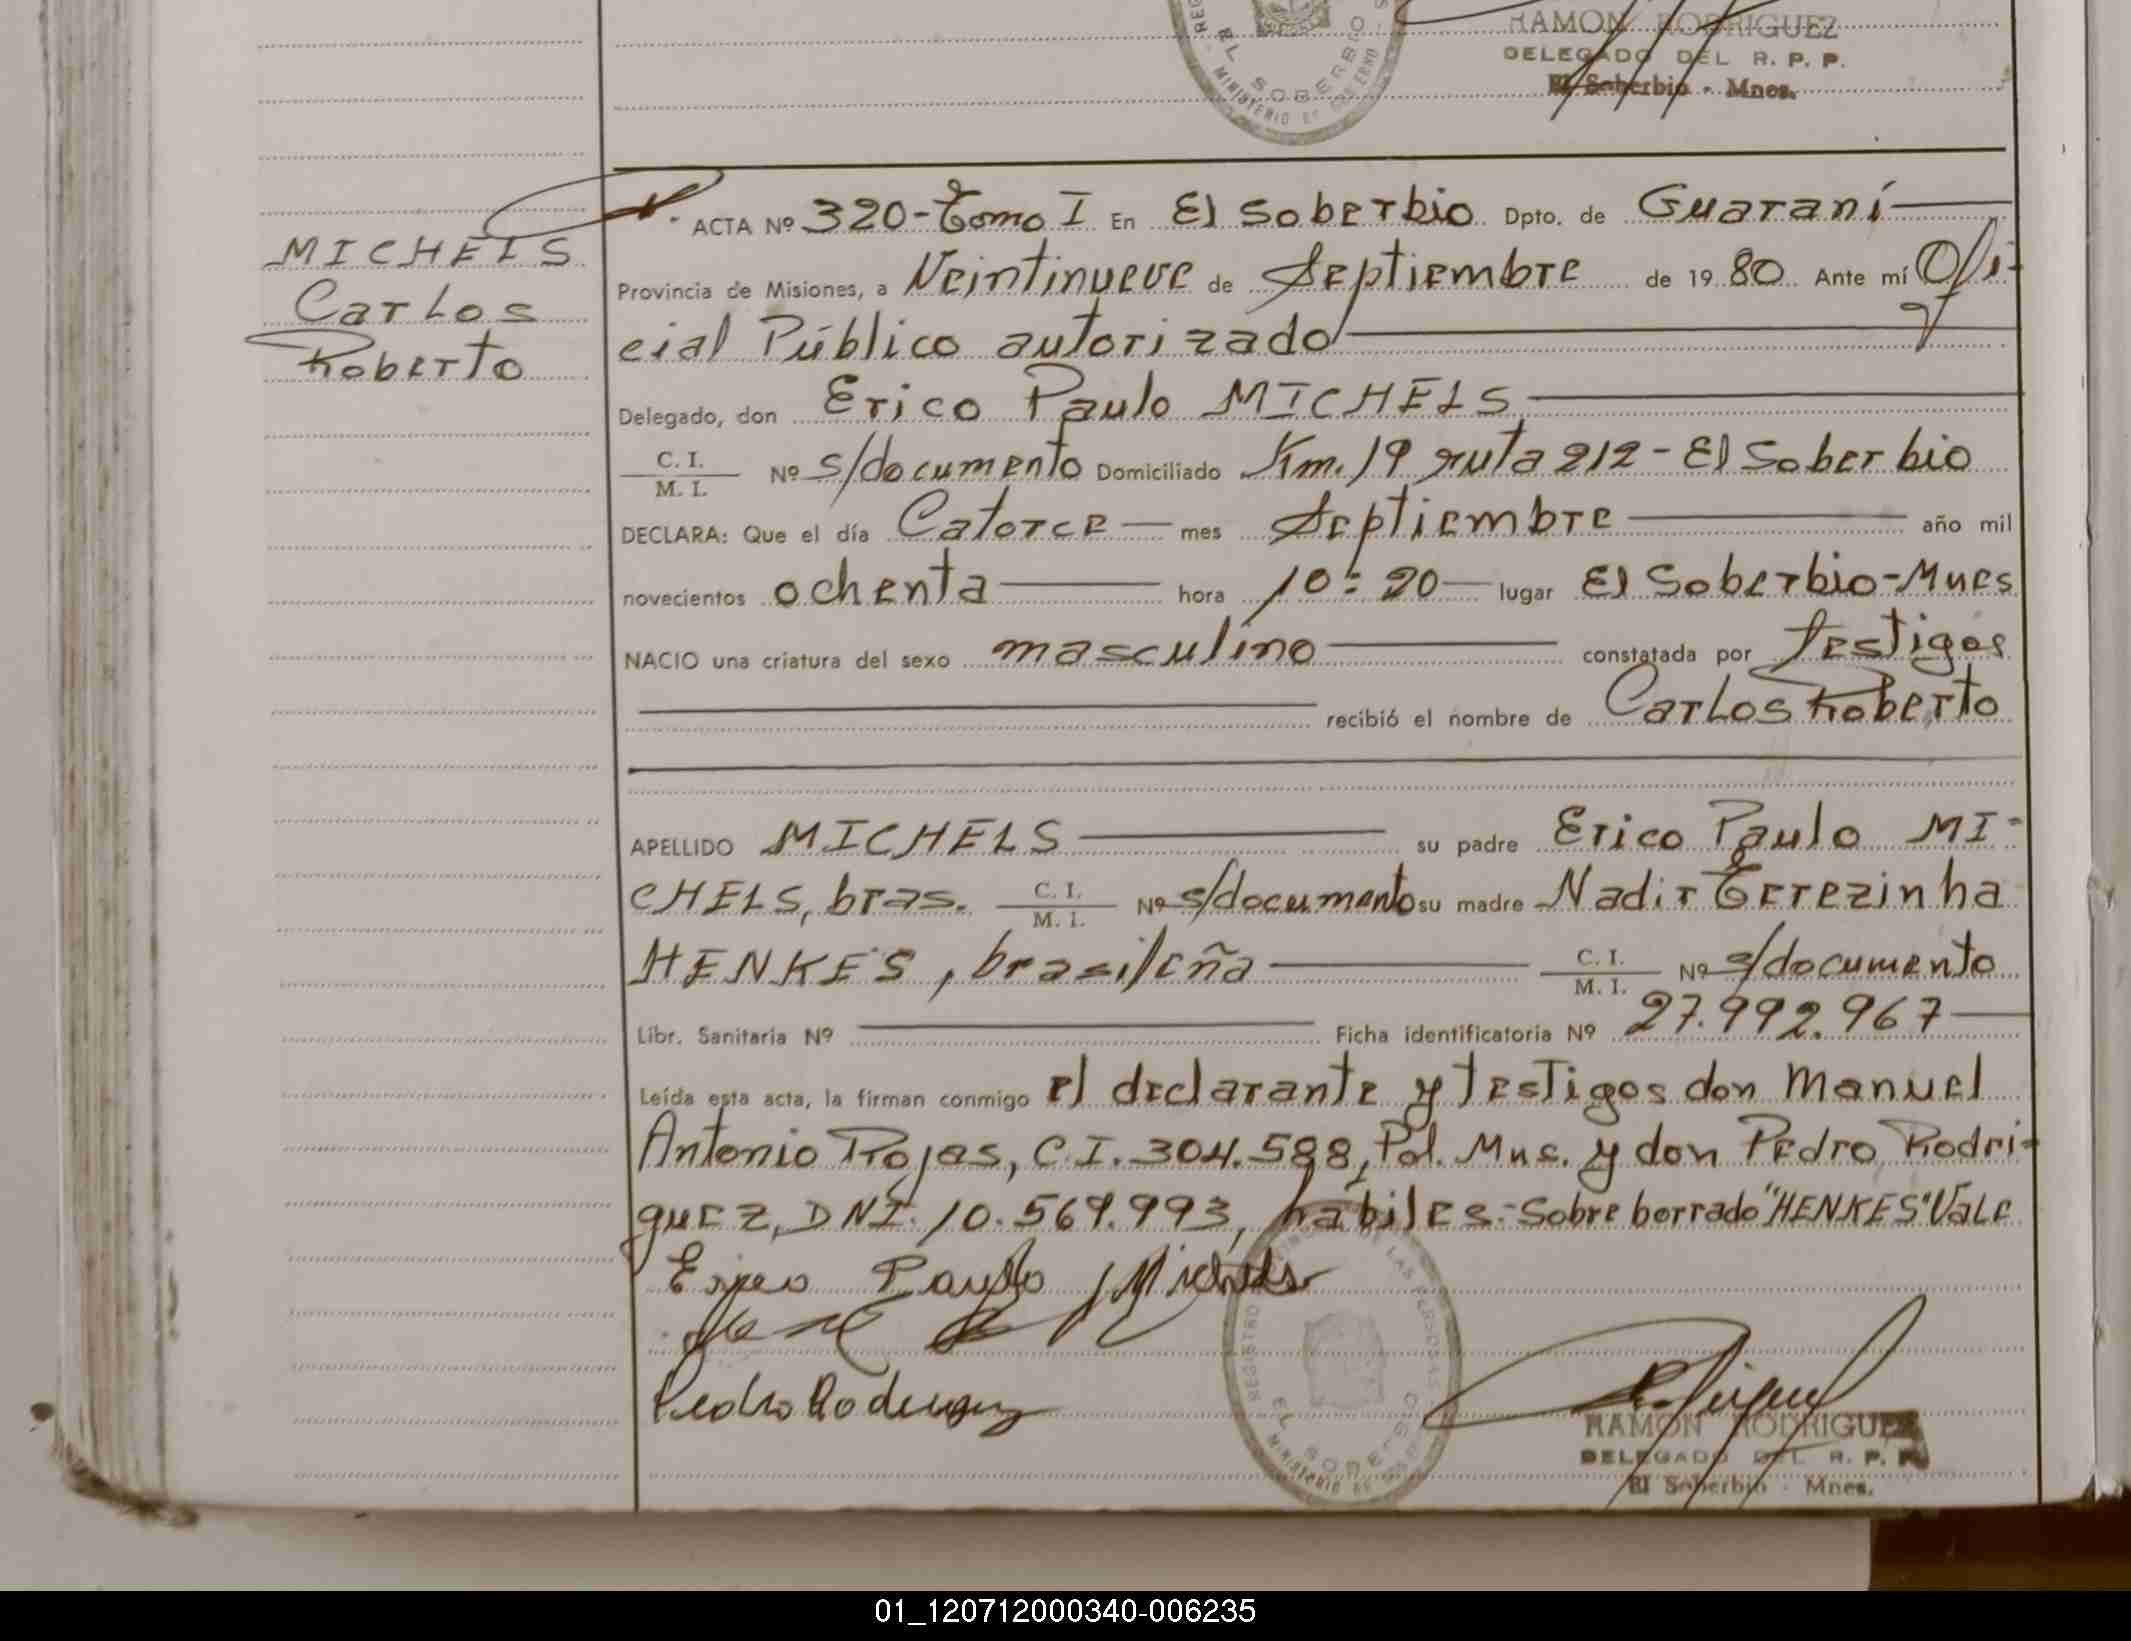 RAMON RODRIGUEZ
DELEGADO DEL R. P. P.
El Soberbio - Mnes.
EL SOBERBIO
MINISTERIO DE GOBIERNO
MICHELS
Carlos
Roberto
ACTA Nº 320-Tomo I En El Soberbio Dpto. de Guaraní
Provincia de Misiones, a Veintinueve de Septiembre de 19 80 Ante mí Ofi-
cial Público autorizado
Delegado, don Erico Paulo MICHELS
C. I.
M. I. Nº s/documento Domiciliado Km. 19 ruta 212 - El Soberbio
DECLARA: Que el día Catorce mes Septiembre año mil
novecientos ochenta hora 10:20 lugar El Soberbio-Mnes
NACIO una criatura del sexo masculino constatada por testigos
recibió el nombre de Carlos Roberto
APELLIDO MICHELS su padre Erico Paulo MI-
CHELS, bras. C. I.
M. I. Nº s/documento su madre Nadir Terezinha
HENKES, brasileña C. I.
M. I. Nº s/documento
Libr. Sanitaria Nº Ficha identificatoria Nº 27.992.967
Leída esta acta, la firman conmigo el declarante y testigos don Manuel
Antonio Rojas, C.I. 304.588, Pol. Mnes. y don Pedro Rodri-
guez, DNI. 10.569.993, hábiles.- Sobre borrado "HENKES" Vale
Erico Paulo Michels
Pedro Rodriguez
EL SOBERBIO
RAMON RODRIGUEZ
DELEGADO DEL R. P. P.
El Soberbio - Mnes.
01_120712000340-006235